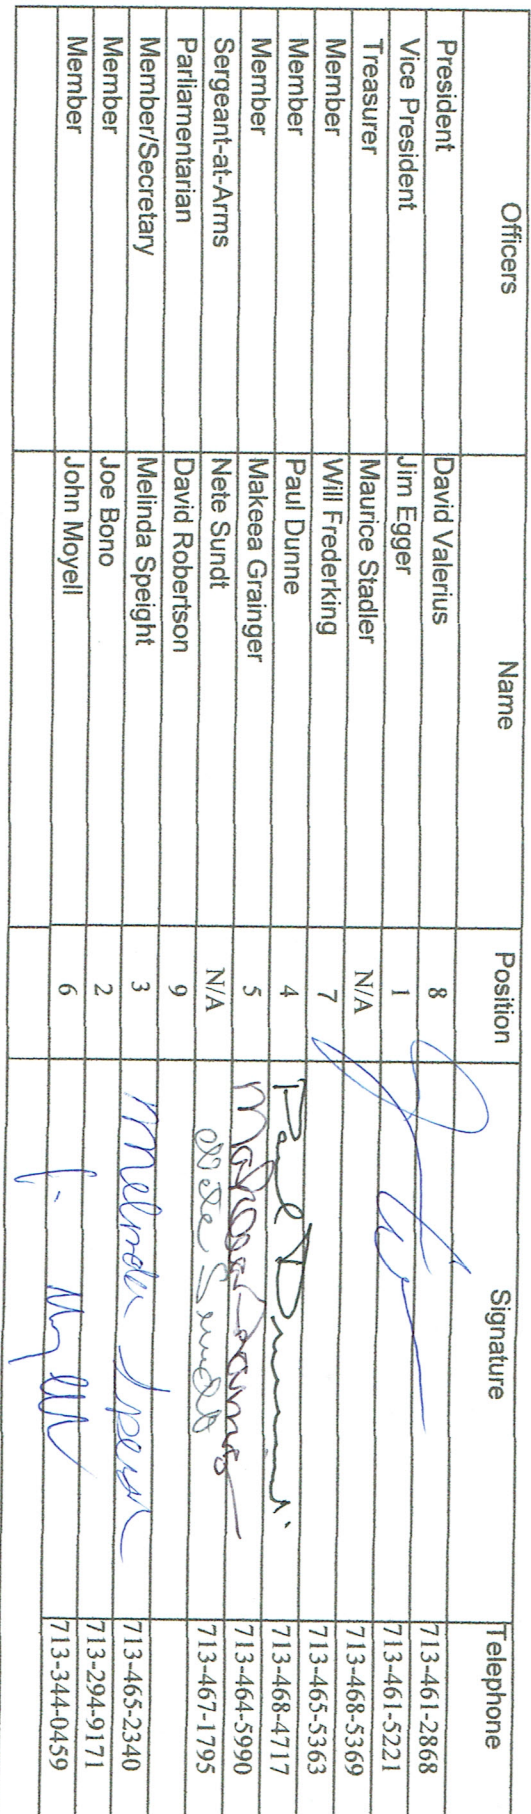 Officers Name Position Signature Telephone
President David Valerius 8 713-461-2868
Vice President Jim Egger 1 713-461-5221
Treasurer Maurice Stadler N/A 713-468-5369
Member Will Frederking 7 713-465-5363
Member Paul Dunne 4 Paul Dunne 713-468-4717
Member Makeea Grainger 5 713-464-5990
Sergeant-at-Arms Nete Sundt N/A Nete Sundt 713-467-1795
Parliamentarian David Robertson 9
Member/Secretary Melinda Speight 3 Melinda 713-465-2340
Member Joe Bono 2 713-294-9171
Member John Moyell 6 713-344-0459